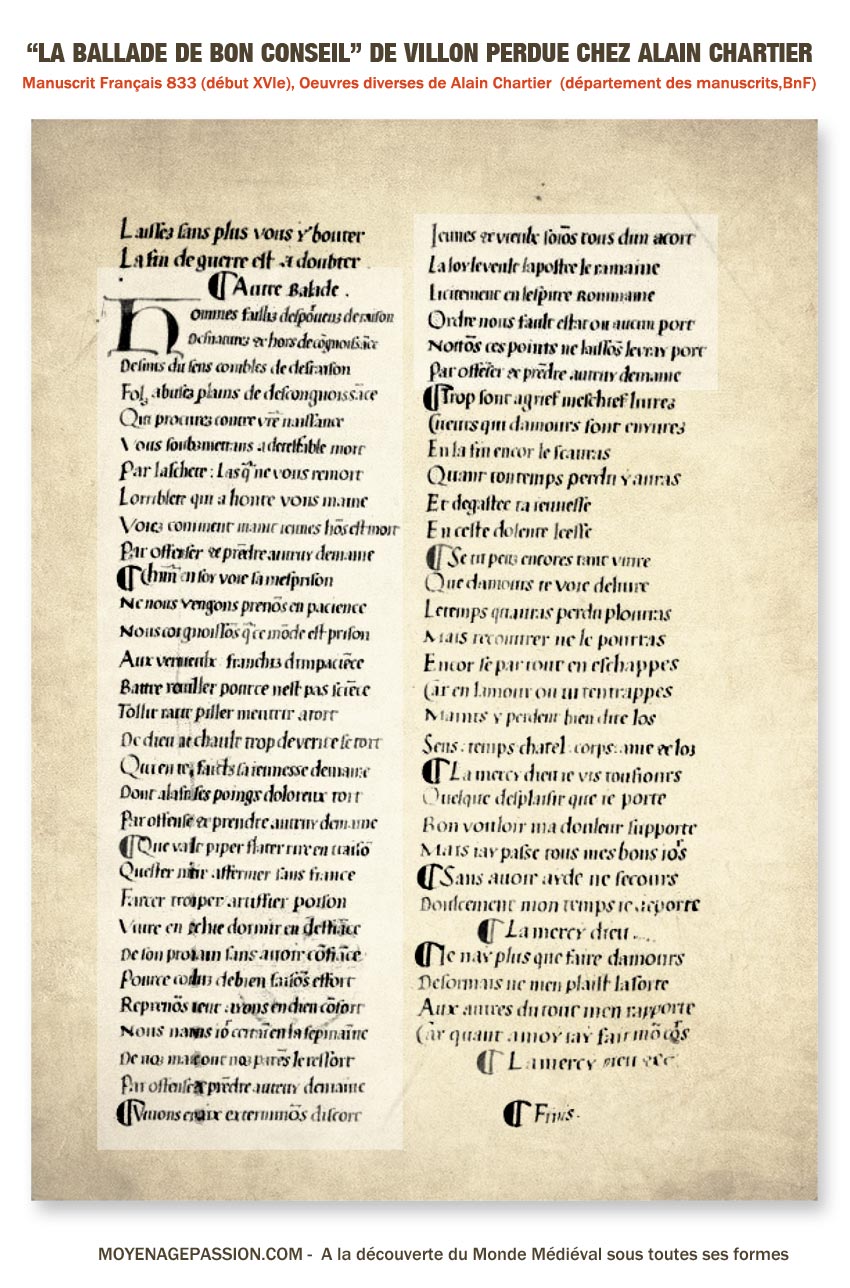 “LA BALLADE DE BON CONSEIL” DE VILLON PERDUE CHEZ ALAIN CHARTIER
Manuscrit Français 833 (début XVIe), Oeuvres diverses de Alain Chartier (département des manuscrits,BnF)
Laisses sans plus vous y bouter
La fin de guerre est a doubter
¶ Autre Balade .
Hommes faillis despourueus de raison
Desnatures et hors de cõgnoissãce
Desmis du sens combles de desraison
Folz abuses plains de descongnoissãce
Qui procures contre vrẽ naissance
Vous soubzmettans a detestable mort
Par laschete : Las q̃ ne vous remort
Lorriblete qui a honte vous maine
Voies comment maint ieunes hõs est mort
Par offenser et prẽdre autruy demaine
¶ Chũn en soy voie sa mesprison
Ne nous vengons prenõs en pacience
Nous congnoissõs q̃ ce mõde est prison
Aux vertueulx franchis dimpaciẽce
Battre rouiller pource nest pas sciẽce
Tollir rauir piller meurtrir a tort
De dieu ne chault trop de verite se tort
Qui en telz faicts sa ieunesse demaine
Dont a la fin ses poings doloreux tort
Par offenser et prendre autruy demaine
¶ Que vault piper flater rire en traisõ
Quester mẽtir affermer sans fiance
Farcer tromper artiffier poison
Viure en pechie dormir en deffiãce
De son prouain sans auoir cõfiãce
Pource conclus de bien faisõs effort
Reprenõs cueur ayons en dieu cõfort
Nous nauons io͛ certain en la sepmaine
De noz maulx ont noz parẽs le ressort
Par offenser et prẽdre autruy demaine
¶ Viuons en paix exterminõs discort
Ieunes et vieulx soiõs tous dun acort
La loy le veult lapostre le ramaine
Licitement en lespitre Rommaine
Ordre nous fault estat ou aucun port
Nottõs ces points ne laissõs le vray port
Par offẽser et prẽdre autruy demaine
¶ Trop sont a grief meschief liures
Cueurs qui damours sont enyures
En la fin encor le scauras
Quant ton temps perdu y auras
Et degastee ta ieunesse
En ceste dolente leesse
¶ Se tu peus encores tant viure
Que damours te voie deliure
Le temps quauras perdu plouras
Mais recouurer ne le pourras
Encor se par tout en eschappes
Car en lamour ou tu tentrappes
Maints y perdent bien dire los
Sens : temps chatel : corps : ame et los
¶ La mercy dieu ie vis tousiours
Quelque desplaisir que ie porte
Bon vouloir ma douleur supporte
Mais iay passe tous mes bons io͛s
¶ Sans auoir ayde ne secours
Doulcement mon temps ie deporte
¶ La mercy dieu .
¶ Ie nay plus que faire damours
Desormais ne men plaist la sorte
Aux autres du tout men rapporte
Car quant a moy iay fait mõ co͛s
¶ La mercy dieu etc
¶ Finis .
MOYENAGEPASSION.COM - A la découverte du Monde Médiéval sous toutes ses formes